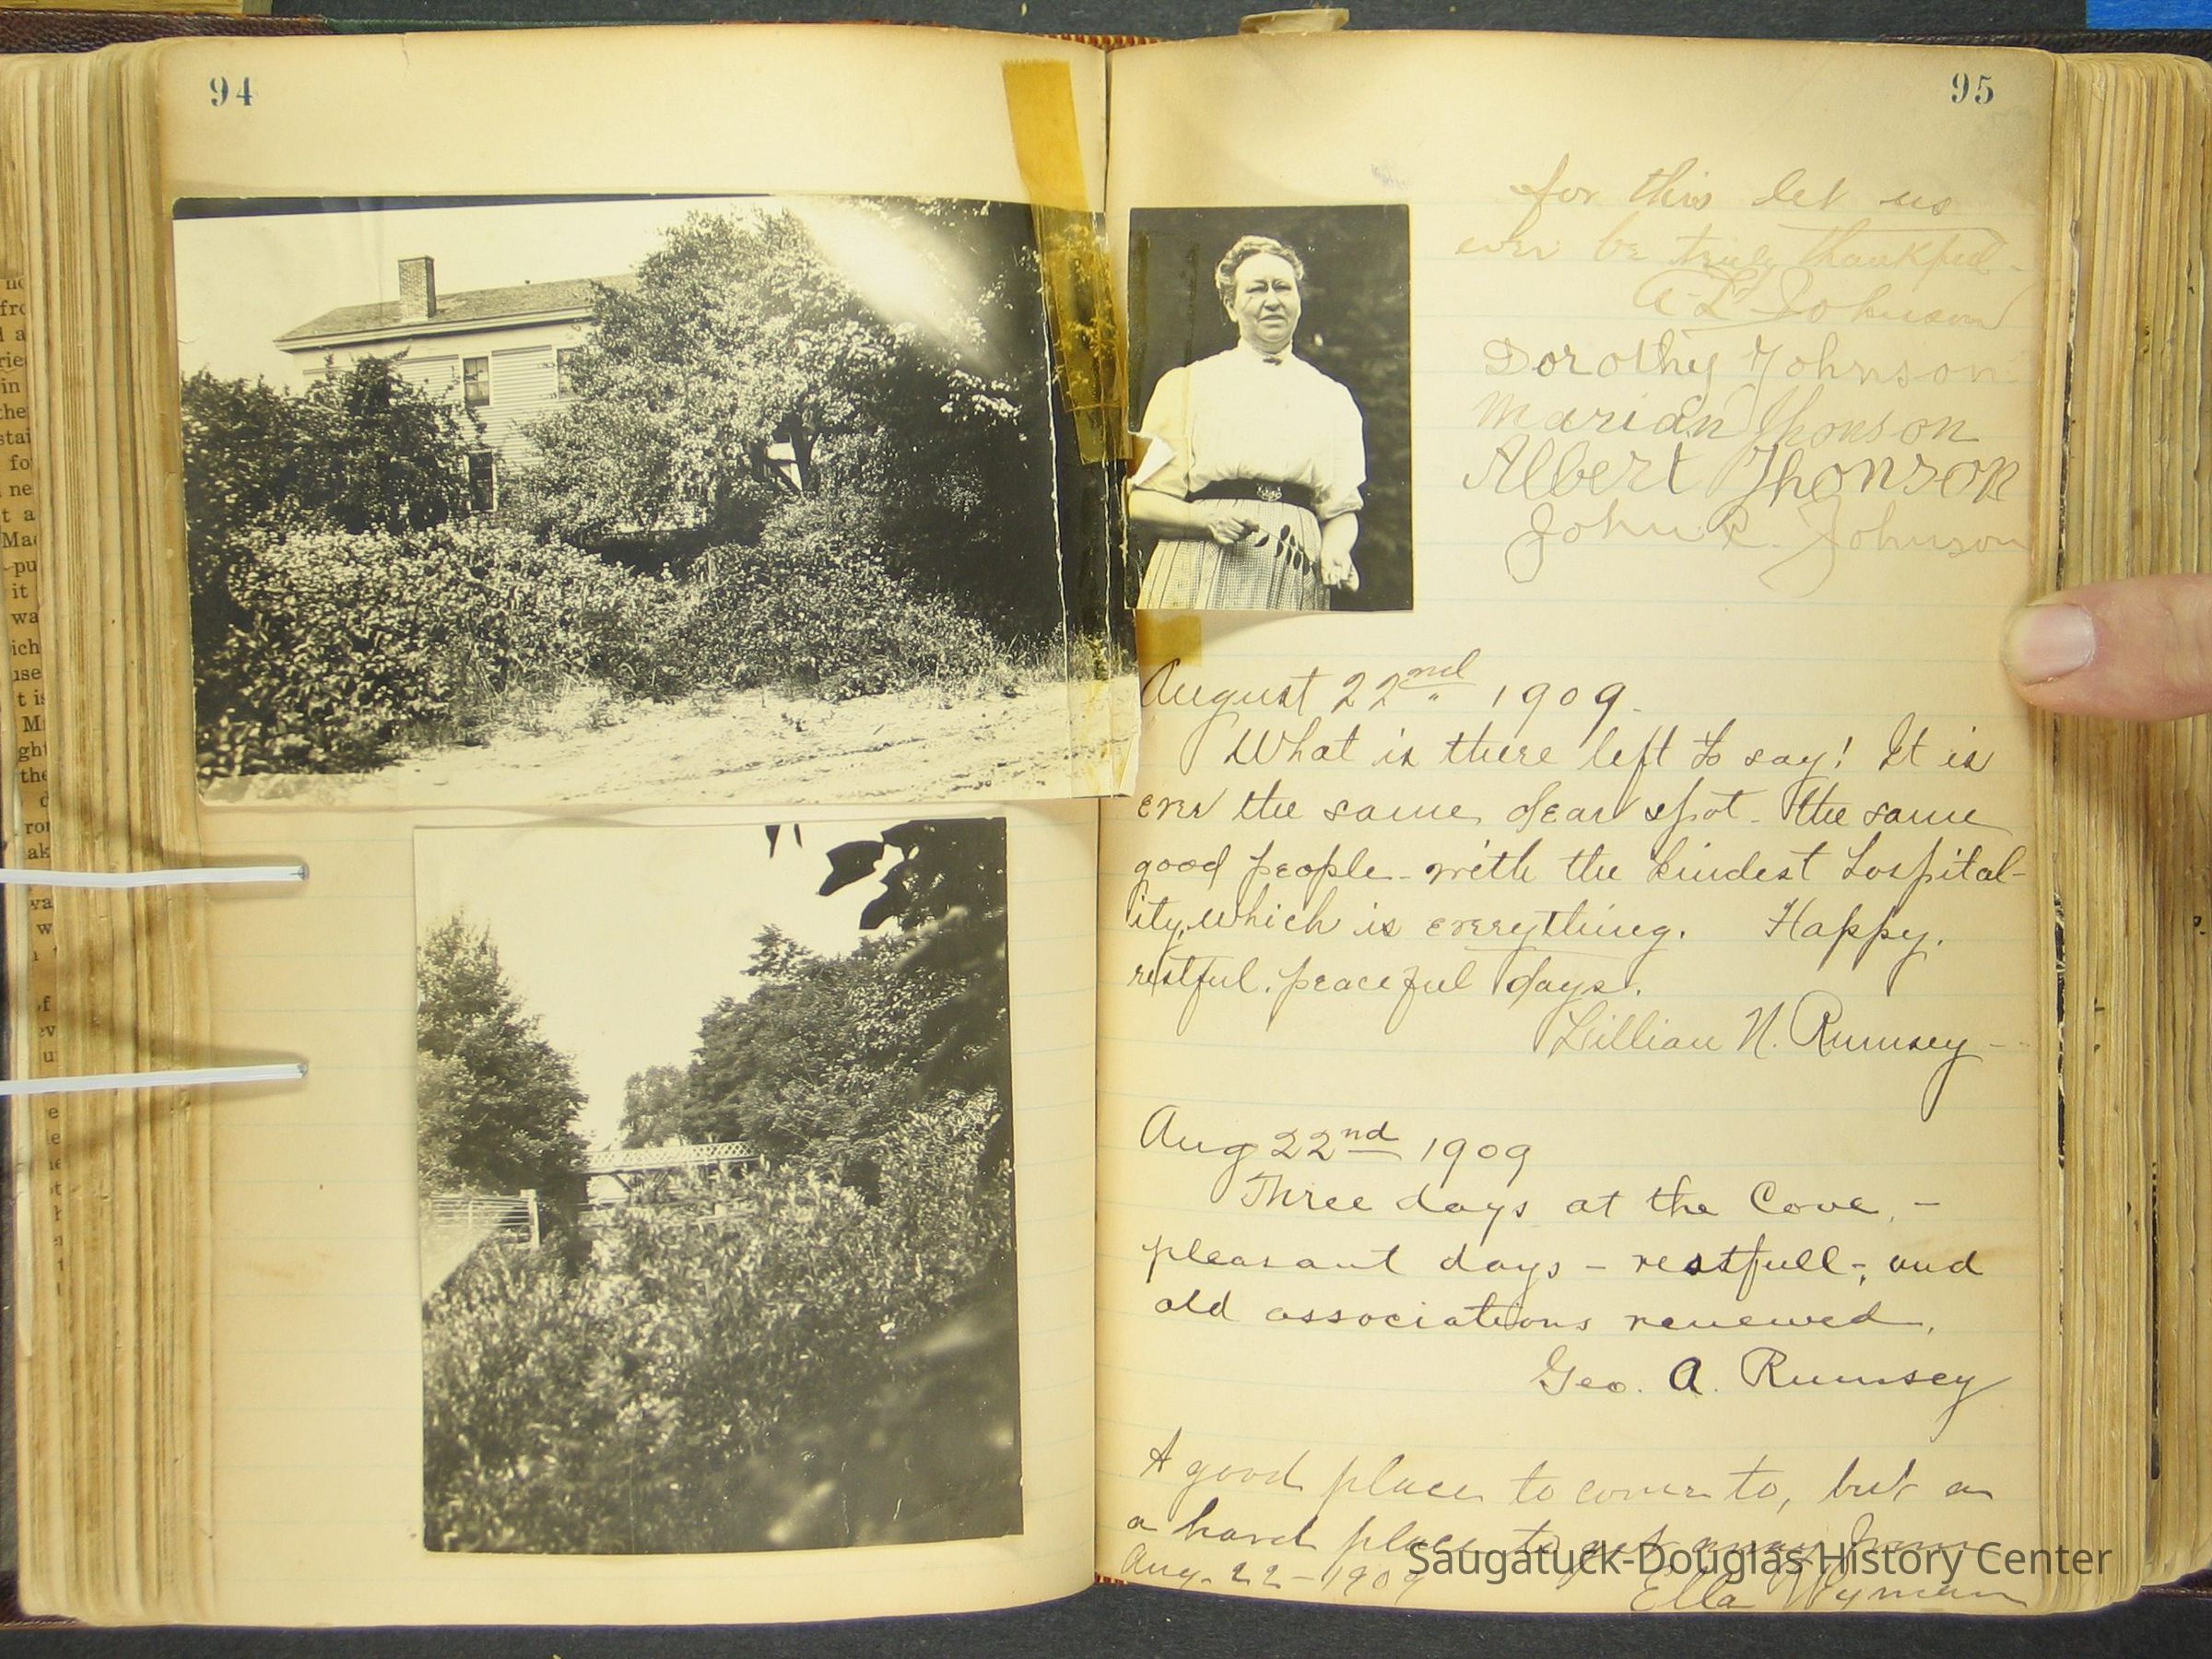 94
95
for this let us
ever be truly thankful -
A L Johnson
Dorothy Johnson
Marian Jhonson
Albert Jhonson
John R. Johnson
August 22nd 1909.
What is there left to say! It is
ever the same dear spot - the same
good people - with the kindest hospital-
ity, which is everything. Happy,
restful, peaceful days.
Lillian N. Rumsey -
Aug 22nd 1909
Three days at the Cove, -
pleasant days - restfull -, and
old associations renewed,
Geo. A. Rumsey
A good place to come to, but a
a hard place to get away from
Aug. 22 - 1909
Ella Wyman
Saugatuck-Douglas History Center